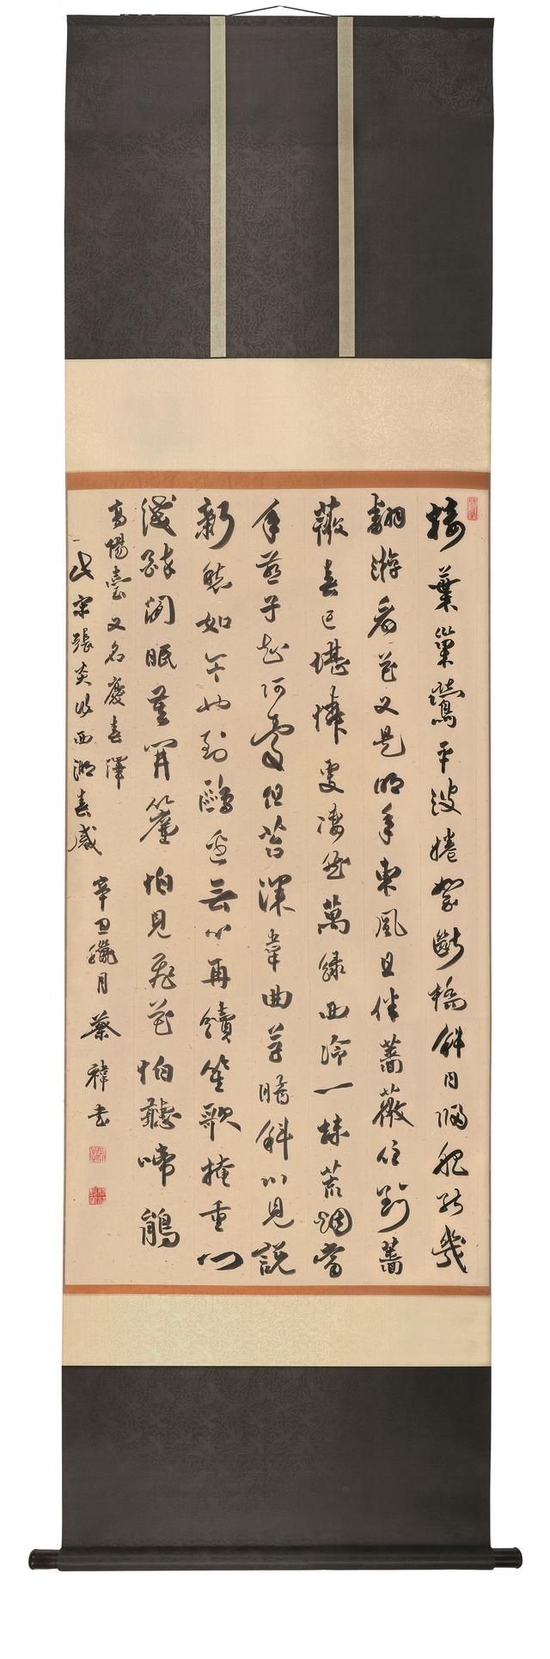 接葉巢鶯平波捲絮斷橋斜日歸船能幾
翻遊看花又是明年東風且伴薔薇住到薔
薇春已堪憐更凄然萬綠西泠一抹荒烟當
年燕子知何處但苔深韋曲草暗斜川見說
新愁如今也到鷗邊無心再續笙歌掩重門
淺醉閒眠莫開簾怕見飛花怕聽啼鵑
高陽臺又名慶春澤
此宋張炎詠西湖春感
辛丑臘月蔡禕書